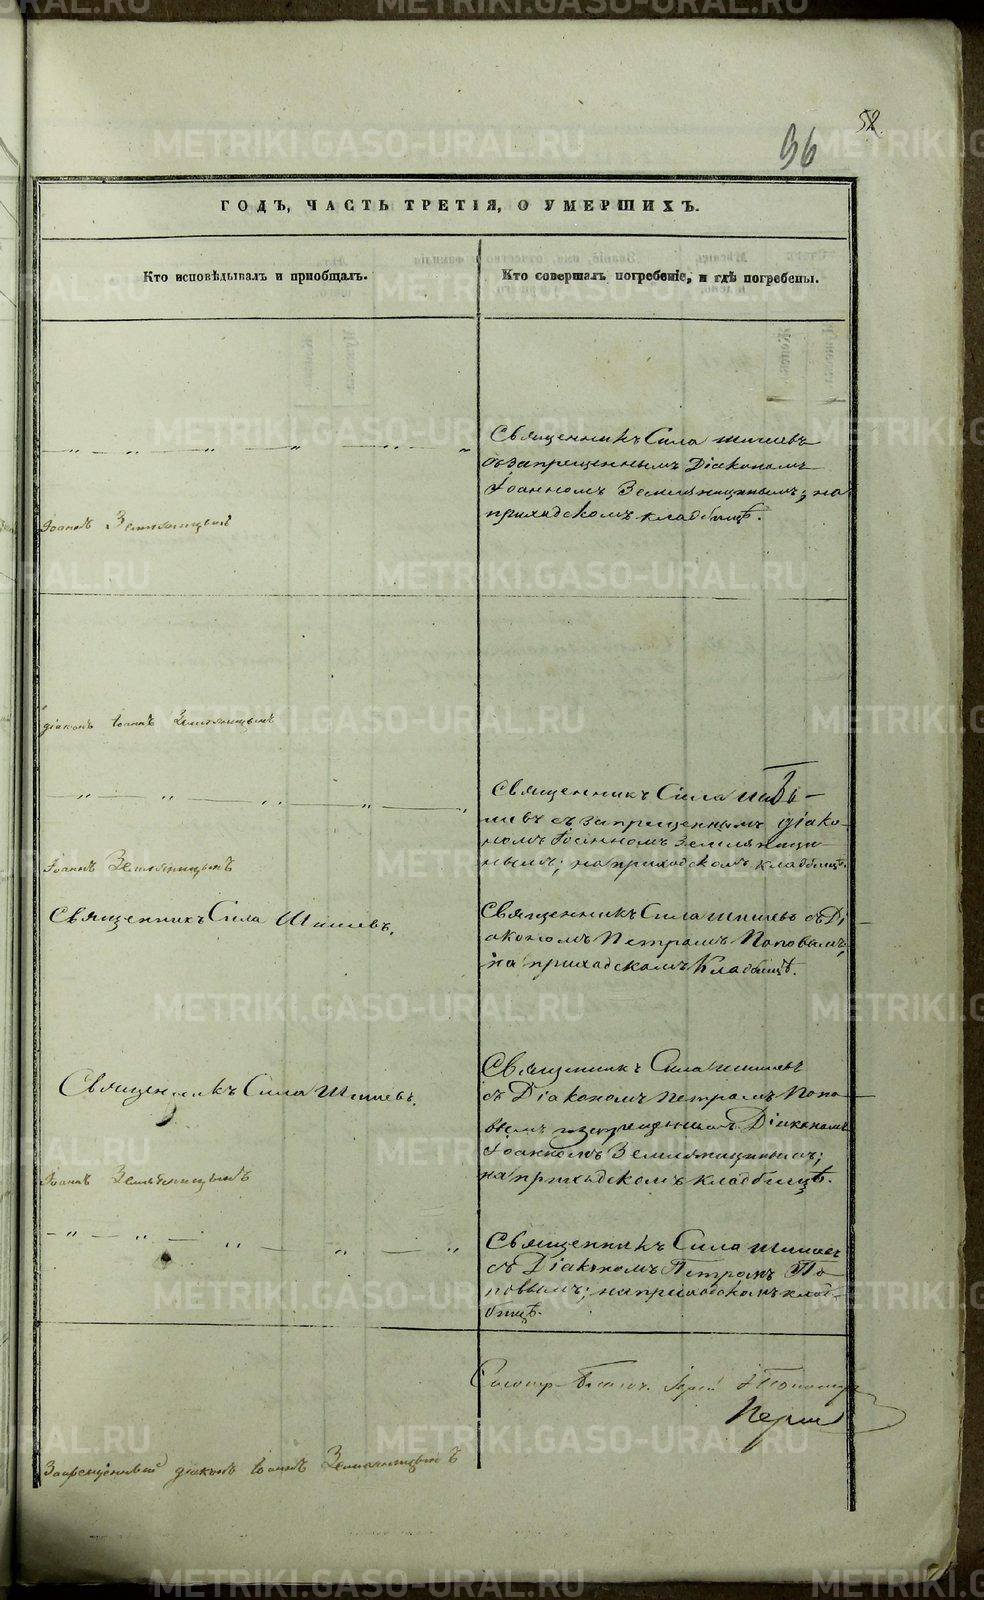 METRIKI.GASO-URAL.RU
52.
36
ГОДЪ, ЧАСТЬ ТРЕТІЯ, О УМЕРШИХЪ.
Кто исповѣдывалъ и пріобщалъ.
Кто совершалъ погребеніе, и гдѣ погребены.
Священникъ Сила Шишевъ
съ запрещеннымъ Діакономъ
Іоанномъ Земляницынымъ; на
приходскомъ кладбищѣ.
Іоаннъ Земляницынъ
діаконъ Іоаннъ Земляницынъ
Священникъ Сила Ши
шевъ съ запрещеннымъ діако-
номъ Іоанномъ Земляници-
нымъ; на приходскомъ кладбищѣ.
Іоаннъ Земляницынъ
Священникъ Сила Шишевъ.
Священникъ Сила Шишевъ съ Ді-
акономъ Петромъ Поповымъ,
на приходскомъ Кладбищѣ.
Священникъ Сила Шишевъ.
Священникъ Сила Шишевъ
съ Діакономъ Петромъ Попо-
вымъ Діакономъ
Іоанномъ Земляницинымъ;
на приходскомъ кладбищѣ.
Іоаннъ Земляницынъ
Священникъ Сила Шишевъ
съ Діакономъ Петромъ По-
повымъ; на приходскомъ клад-
бищѣ.
Запрещенный діаконъ Іоаннъ Земляницынъ